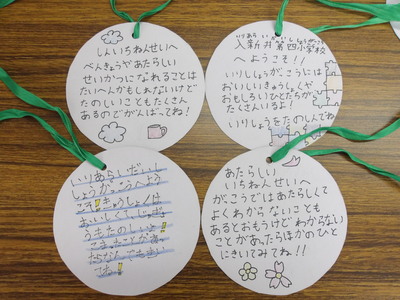 しんいちねんせいへ
べんきょうやあたらしい
せいかつになれることは
たいへんかもしれないけど
たのしいこともたくさん
あるのでがんばってね!
いりあらいだいよんしょうがっこう
入新井第四小学校
へようこそ!!
いりししょうがっこうには
おいしいきゅうしょくや
おもしろいひとたちが
たくさんいるよ!
いりしょうをたのしんでね
いりあらいだいし
しょうがっこうへよう
こそ!きゅうしょくは
おいしくてじゅぎょ
うもたのしいよ!
こまったことがあっ
たらなんでもきい
てね!
あたらしい
いちねんせいへ
がっこうではあたらしくて
よくわからないことも
あるとおもうけどわからない
ことがあったらほかのひと
にきいてみてね!!